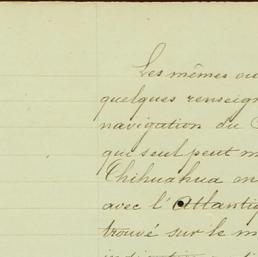 Les mêmes ou
quelques renseign
navigation du
qui seul peut m
Chihuahua en
avec l'Atlantiq
trouvé sur le m